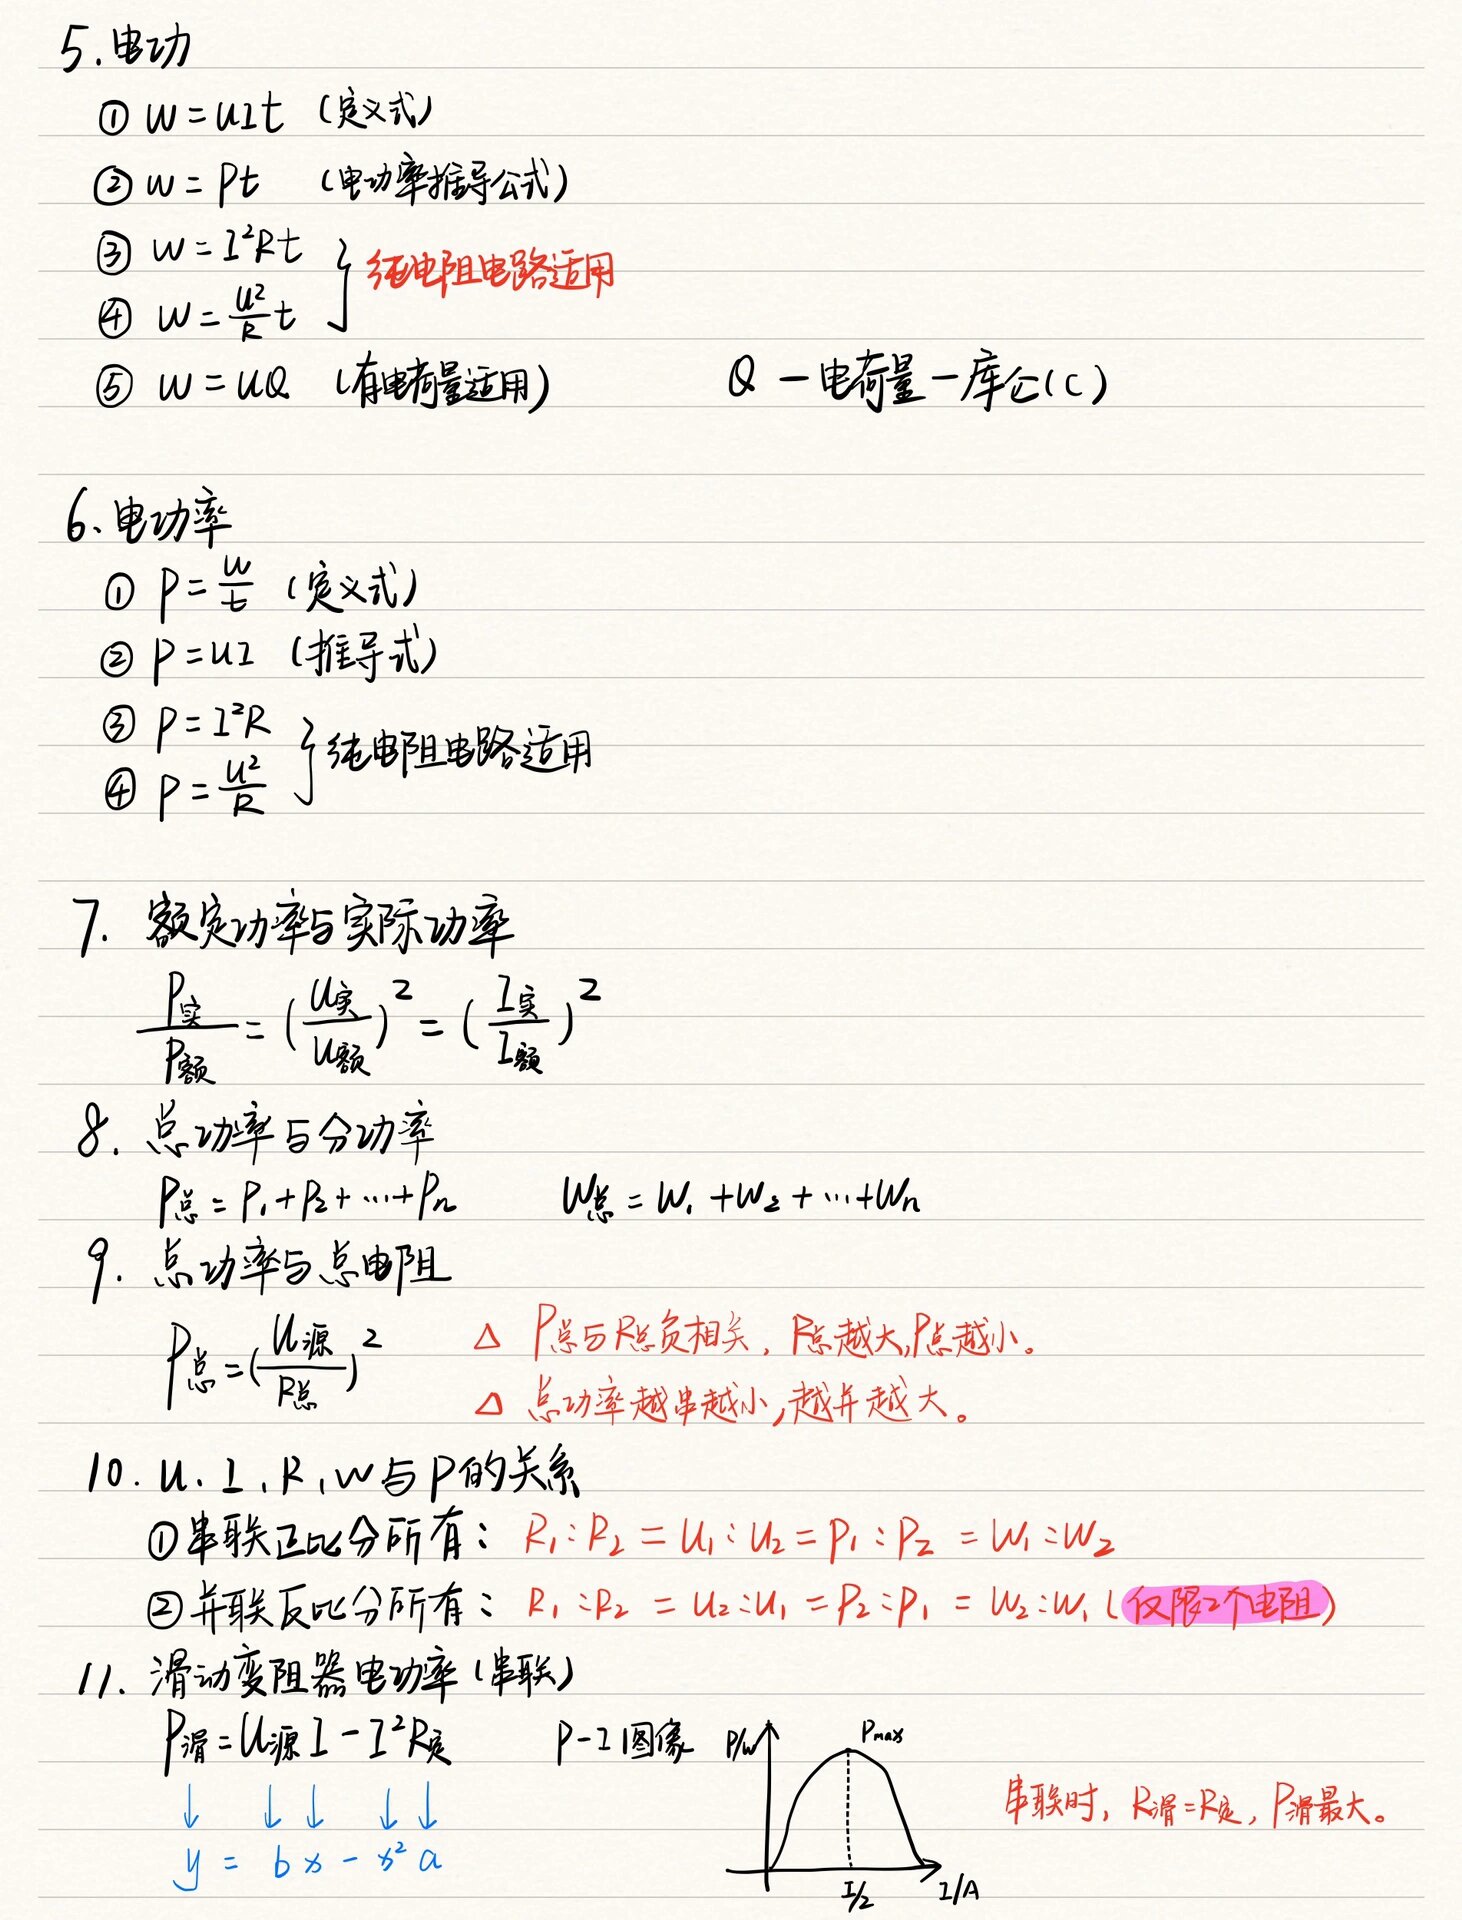 5.电功
① W=UIt (定义式)
② W=Pt (电功率推导公式)
③ W=I²Rt
④ W=U²/R t
} 纯电阻电路适用
⑤ W=UQ (有电荷量适用) Q—电荷量—库仑(C)
6、电功率
① P=W/t (定义式)
② P=UI (推导式)
③ P=I²R
④ P=U²/R
} 纯电阻电路适用
7. 额定功率与实际功率
P实/P额=(U实/U额)²=(I实/I额)²
8. 总功率与分功率
P总=P₁+P₂+…+Pn W总=W₁+W₂+…+Wn
9. 总功率与总电阻
P总=(U源/R总)²
△ P总与R总负相关，R总越大,P总越小。
△ 总功率越串越小,越并越大。
10. U、I、R、W与P的关系
①串联正比分所有：R₁:R₂=U₁:U₂=P₁:P₂=W₁:W₂
②并联反比分所有：R₁:R₂=U₂:U₁=P₂:P₁=W₂:W₁(仅限2个电阻)
11. 滑动变阻器电功率(串联)
P滑=U源I-I²R定 P-I图像
↓ ↓ ↓ ↓ ↓
y = b x - x² a
P/W
Pmax
I/2
I/A
串联时，R滑=R定，P滑最大。